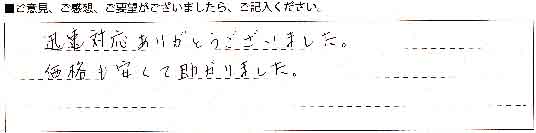 ■ご意見、ご感想、ご要望がございましたら、ご記入ください。
迅速対応ありがとうございました。
価格も安くて助かりました。